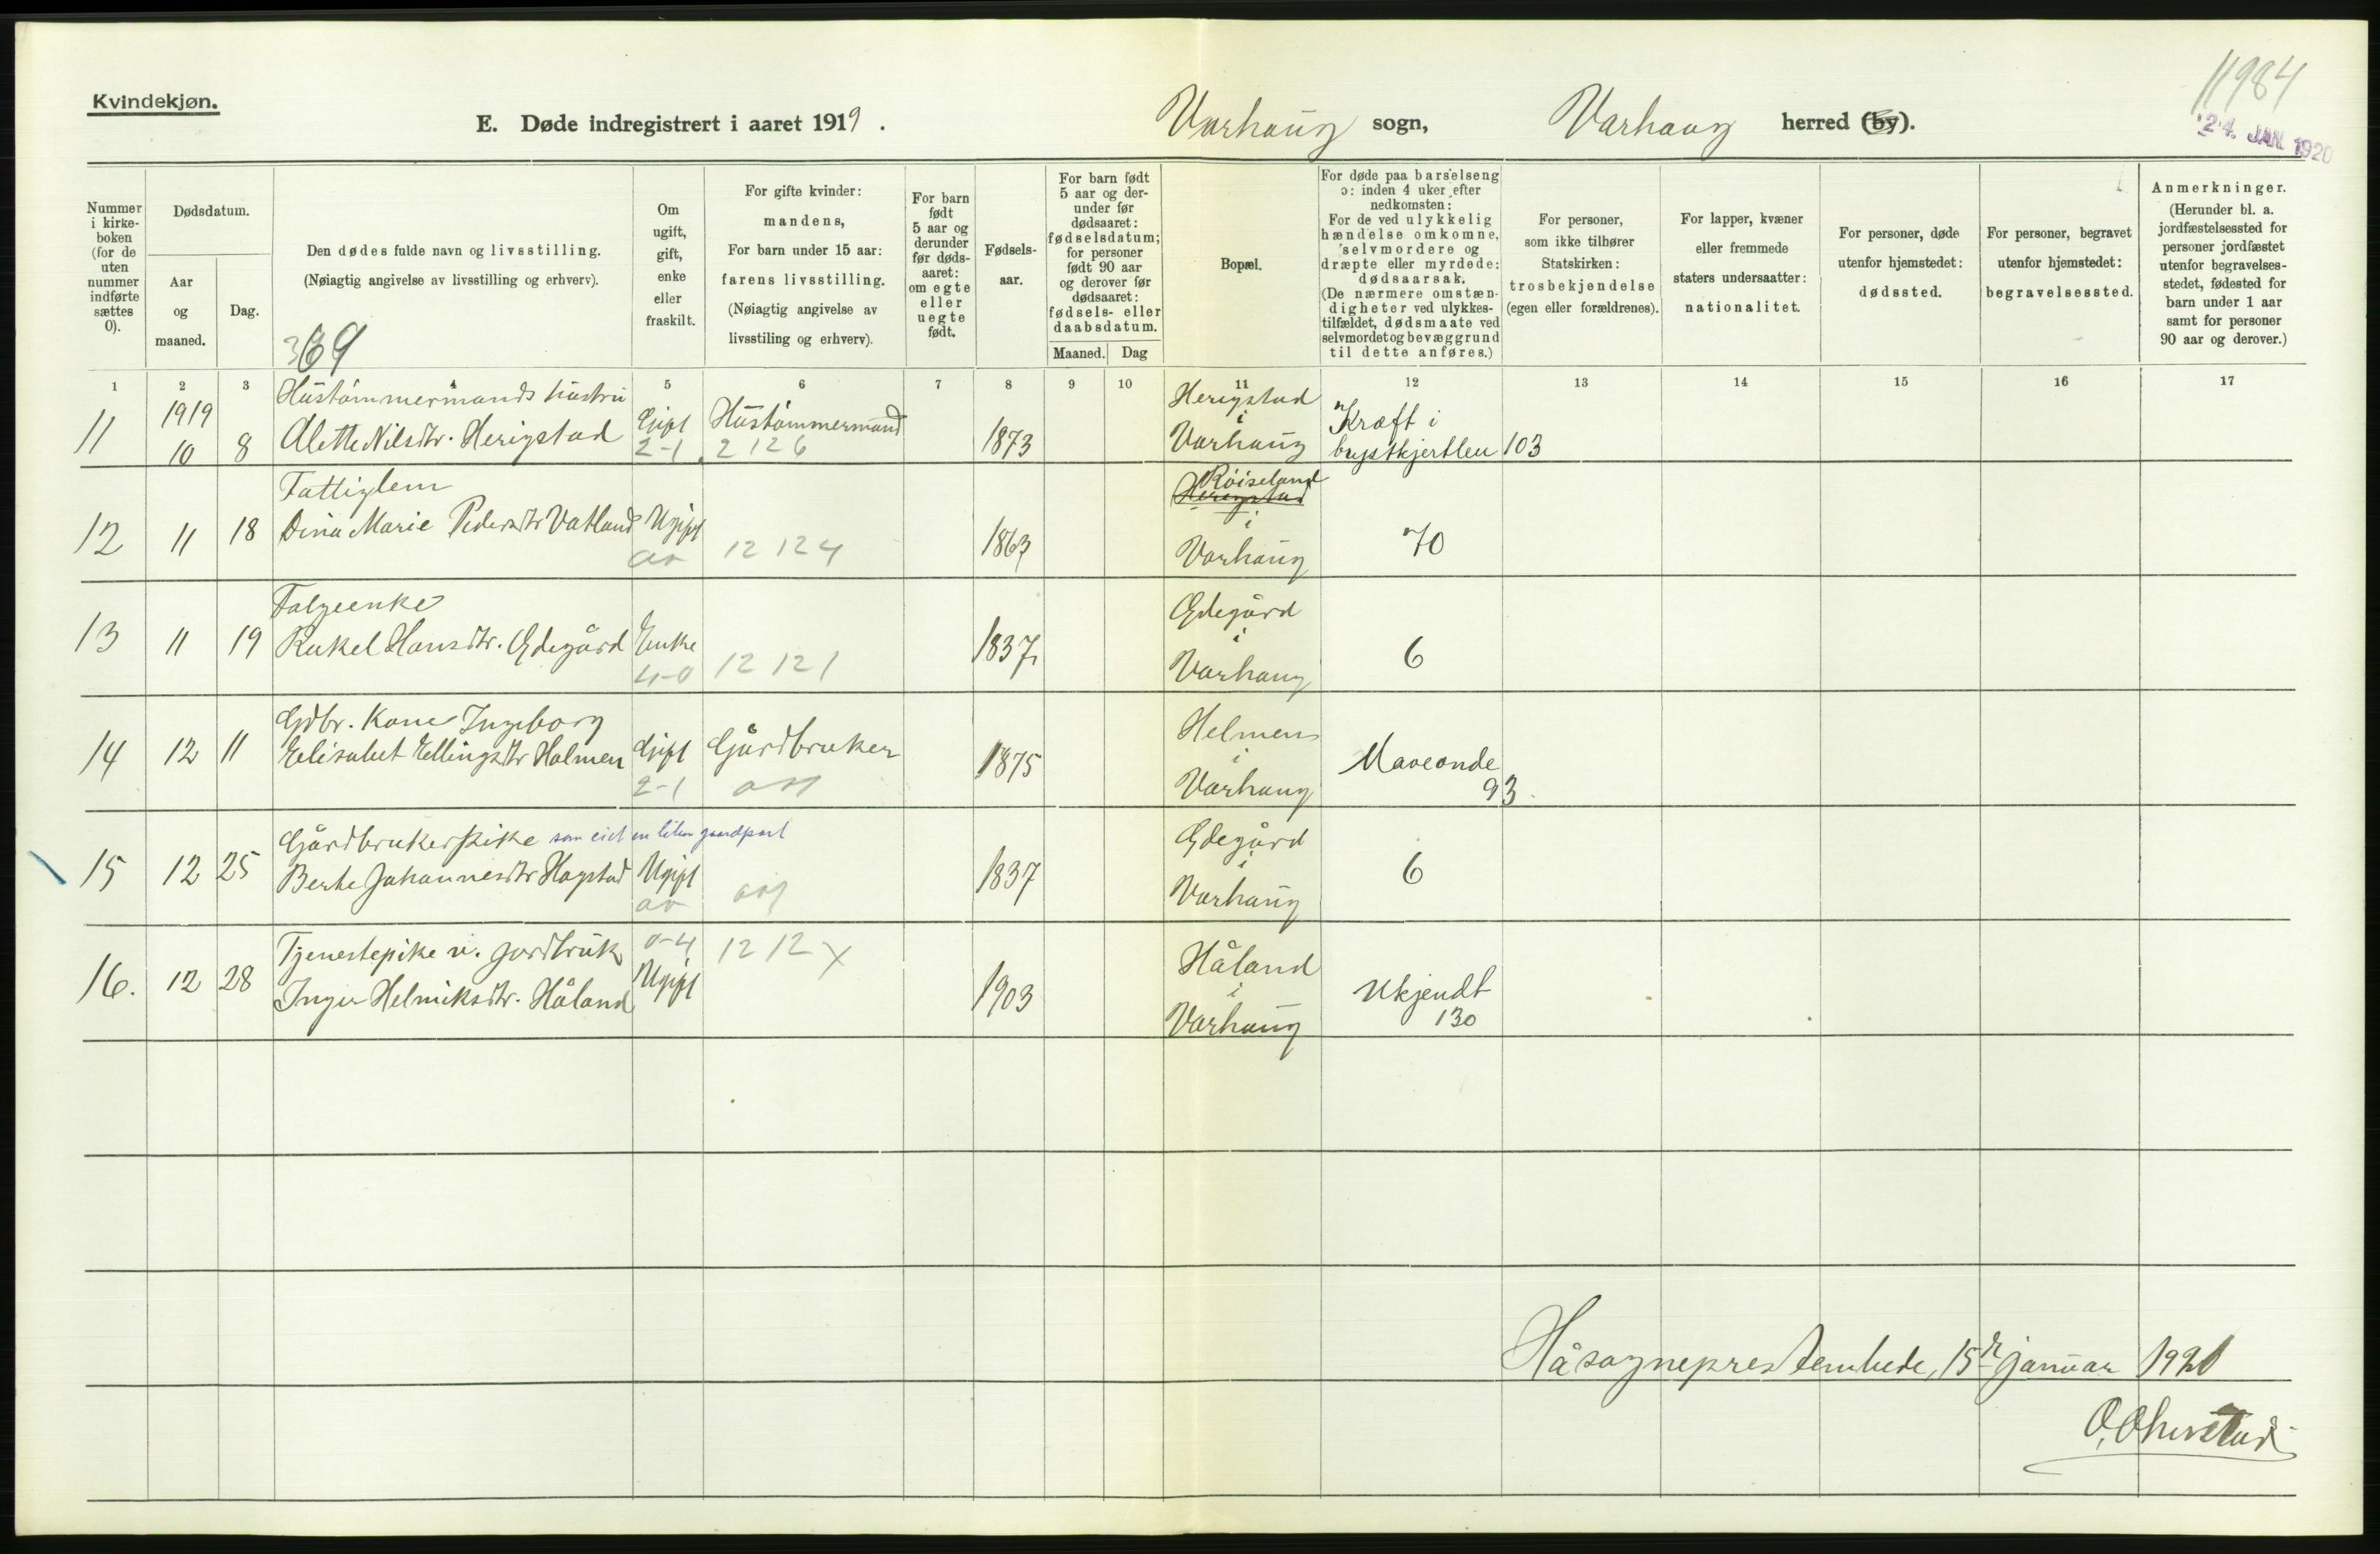 Kvindekjøn.
E. Døde indregistrert i aaret 1919.
Varhaug sogn, Varhaug herred (by).
11984
24. JAN. 1920
Nummer i kirke-boken (for de uten nummer indførte sættes 0).
Dødsdatum.
Aar og maaned.
Dag.
Den dødes fulde navn og livsstilling.
(Nøiagtig angivelse av livsstilling og erhverv).
369
Om ugift, gift, enke eller fraskilt.
For gifte kvinder: mandens,
For barn under 15 aar: farens livsstilling.
(Nøiagtig angivelse av livsstiling og erhverv).
For barn født 5 aar og derunder før døds-aaret: om egte eller uegte født.
Fødsels-aar.
For barn født 5 aar og der-under før dødsaaret: fødselsdatum; for personer født 90 aar og derover før dødsaaret: fødsels- eller daabsdatum.
Maaned. Dag
Bopæl.
For døde paa barselseng ɔ: inden 4 uker efter nedkomsten: For de ved ulykkelig hændelse omkomne, selvmordere og dræpte eller myrdede: dødsaarsak. (De nærmere omstæn-digheter ved ulykkes-tilfældet, dødsmaate ved selvmordet og bevæggrund til dette anføres.)
For personer, som ikke tilhører Statskirken: trosbekjendelse (egen eller forældrenes).
For lapper, kvæner eller fremmede staters undersaatter: nationalitet.
For personer, døde utenfor hjemstedet: dødssted.
For personer, begravet utenfor hjemstedet: begravelsessted.
Anmerkninger. (Herunder bl. a. jordfæstelsessted for personer jordfæstet utenfor begravelses-stedet, fødested for barn under 1 aar samt for personer 90 aar og derover.)
1 2 3 4 5 6 7 8 9 10 11 12 13 14 15 16 17
Hüstömmermands hüstrü Herigstad
11 1919 10 8 Alette Nilsdtr. Herigstad Gift Hüstömmermand 1873 i Varhaug Kræft i brystkjertlen 103
2-1 2 126
Fattiglem Röiseland Herigstad
12 11 18 Dina Marie Pedersdtr Vatland Ugift 1863 i Varhaug 70
12 124
Folgeenke Ødegård
13 11 19 Rakel Hansdtr. Ødegård Enke 1837 i Varhaug 6
4-0 12 121
Gdbr. Kone Ingeborg Helmen
14 12 11 Elisabet Ellingsdtr Holmen Gift Gårdbruker 1875 i Varhaug Maveonde 93
2-1
Gårdbrukerpike som eiet en liten gaardpart Ødegård
15 12 25 Berte Johannesdtr Hogstad Ugift 1837 i Varhaug 6
Tjenestepike v. jordbrük 0-4 12 12 X Håland
16. 12 28 Inger Helmiksdtr. Håland Ugift 1903 i Varhaug Ukjendt 130
Hå sogneprestembede, 15de januar 1920